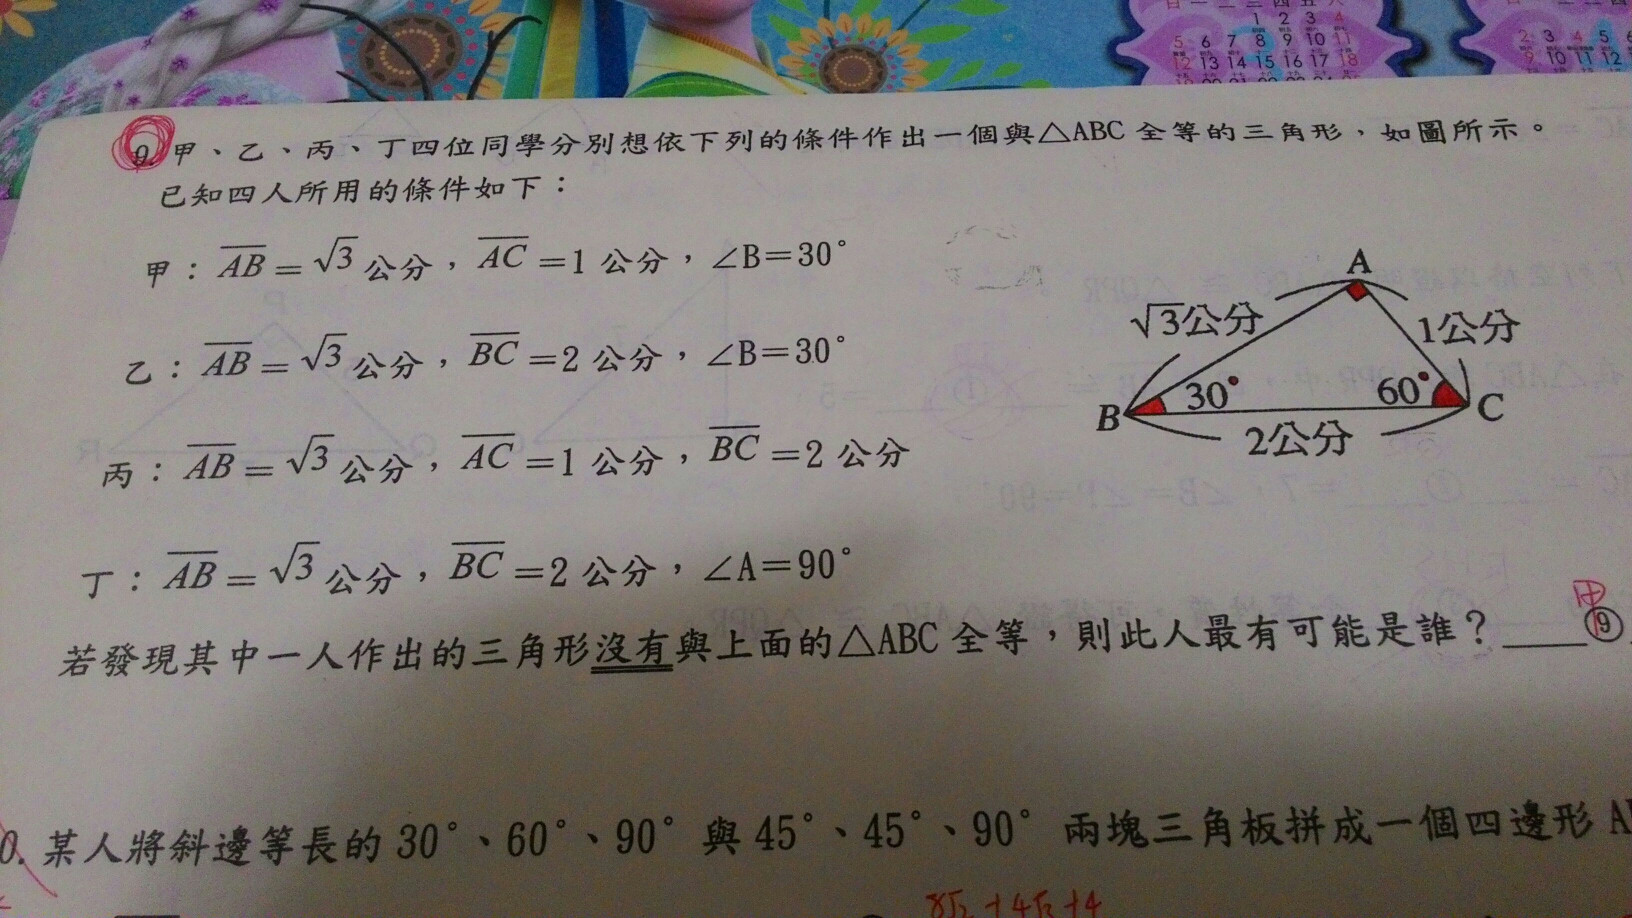 1 2 3 4
5 6 7 8 9 10 11
12 13 14 15 16 17 18
2 3 4 5
9 10 11 12
9. 甲、乙、丙、丁四位同學分別想依下列的條件作出一個與△ABC 全等的三角形,如圖所示。
已知四人所用的條件如下:
甲:AB=√3 公分,AC=1 公分,∠B=30°
乙:AB=√3 公分,BC=2 公分,∠B=30°
丙:AB=√3 公分,AC=1 公分,BC=2 公分
丁:AB=√3 公分,BC=2 公分,∠A=90°
A
√3公分
1公分
B 30° 60° C
2公分
若發現其中一人作出的三角形沒有與上面的△ABC 全等,則此人最有可能是誰?____⑲
甲
0. 某人將斜邊等長的 30°、60°、90° 與 45°、45°、90° 兩塊三角板拼成一個四邊形 A